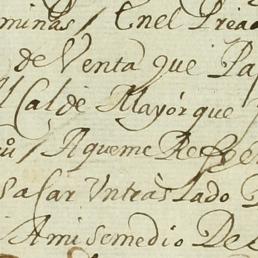 minas / Enel Prea
de Venta que Pa
Alcalde Mayor que
/ Aqueme Refie
sacar Untràs lado
Ami semedio De